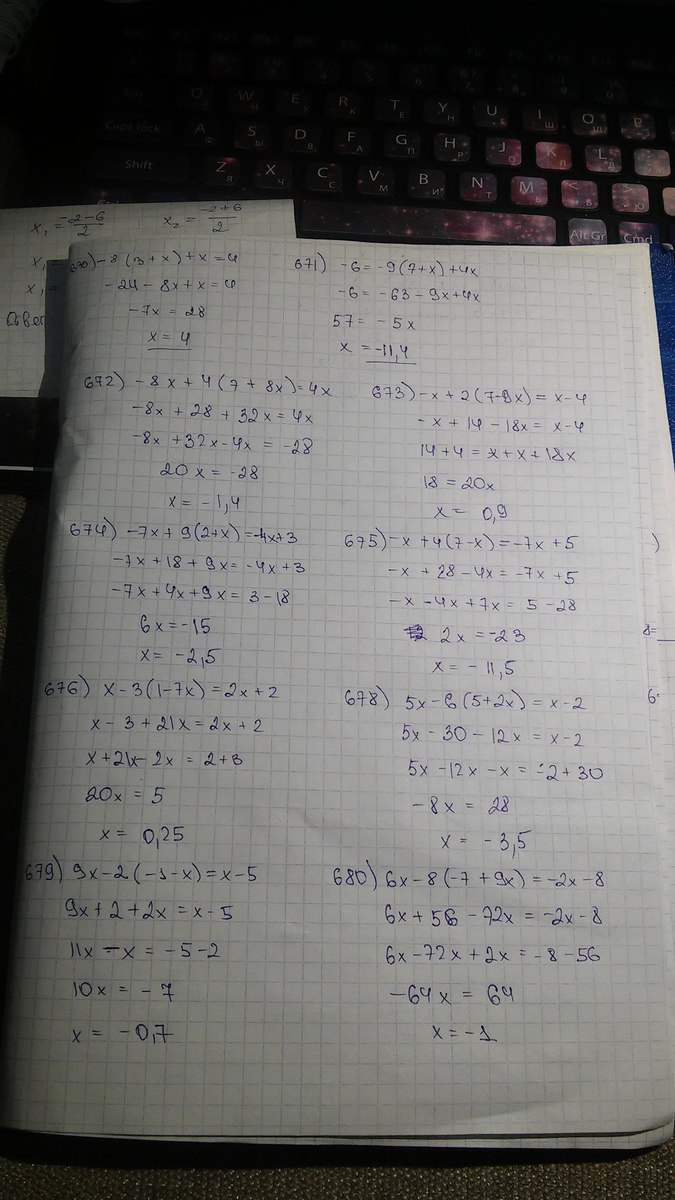 x₁ = -2-6/2   x₂ = -2+6/2
x₁ =
x₁ =
Ответ
670) -8(3+x)+x=4
-24-8x+x=4
-7x=28
x=4
671) -6=-9(7+x)+4x
-6=-63-9x+4x
57=-5x
x=-11,4
672) -8x+4(7+8x)=4x
-8x+28+32x=4x
-8x+32x-4x=-28
20x=-28
x=-1,4
673) -x+2(7-9x)=x-4
-x+14-18x=x-4
14+4=x+x+18x
18=20x
x=0,9
674) -7x+9(2+x)=-4x+3
-7x+18+9x=-4x+3
-7x+4x+9x=3-18
6x=-15
x=-2,5
675) -x+4(7-x)=-7x+5
-x+28-4x=-7x+5
-x-4x+7x=5-28
2x=-23
x=-11,5
676) x-3(1-7x)=2x+2
x-3+21x=2x+2
x+21x-2x=2+3
20x=5
x=0,25
678) 5x-6(5+2x)=x-2
5x-30-12x=x-2
5x-12x-x=-2+30
-8x=28
x=-3,5
679) 9x-2(-1-x)=x-5
9x+2+2x=x-5
11x-x=-5-2
10x=-7
x=-0,7
680) 6x-8(-7+9x)=-2x-8
6x+56-72x=-2x-8
6x-72x+2x=-8-56
-64x=64
x=-1
)
8=
6
Tab Q W Ц E У R К T Е Y Н U I Ш O Щ P З
Caps lock A Ф S Ы D В F А G П H Р J О K Л L Д
Shift Z Я X Ч C С V М B И N Т M Ь < Б > Ю
Alt Gr Cmd